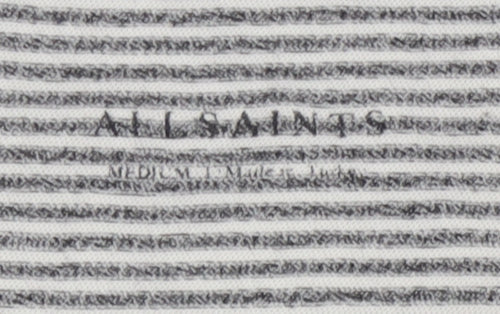 ALLSAINTS
MEDIUM | Made in